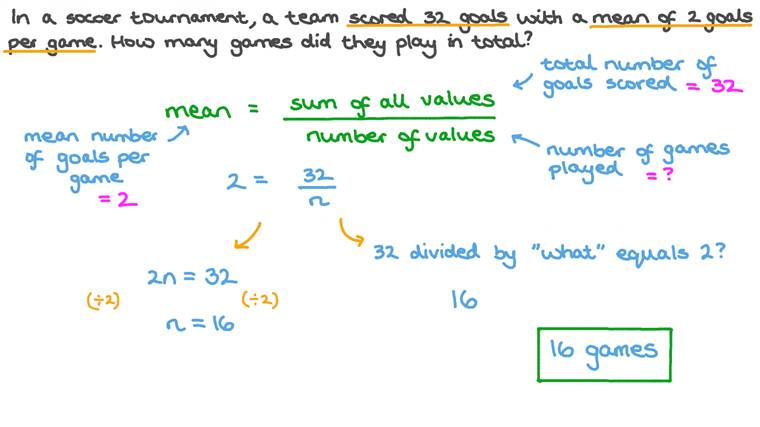 In a soccer tournament, a team scored 32 goals with a mean of 2 goals
per game. How many games did they play in total?
total number of
goals scored = 32
mean = sum of all values
number of values
mean number
of goals per
game
= 2
number of games
played = ?
2 = 32
n
32 divided by "what" equals 2?
2n = 32
(÷2) (÷2)
16
n = 16
16 games